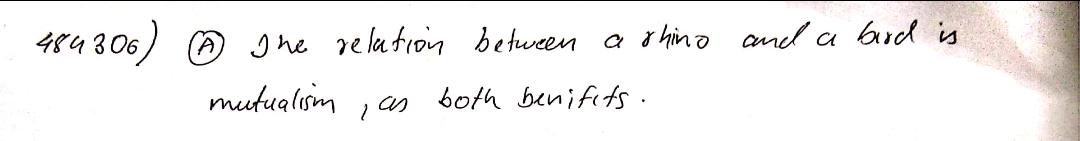 484306) (A) The relation between a rhino and a bird is
mutualism, as both benifits.